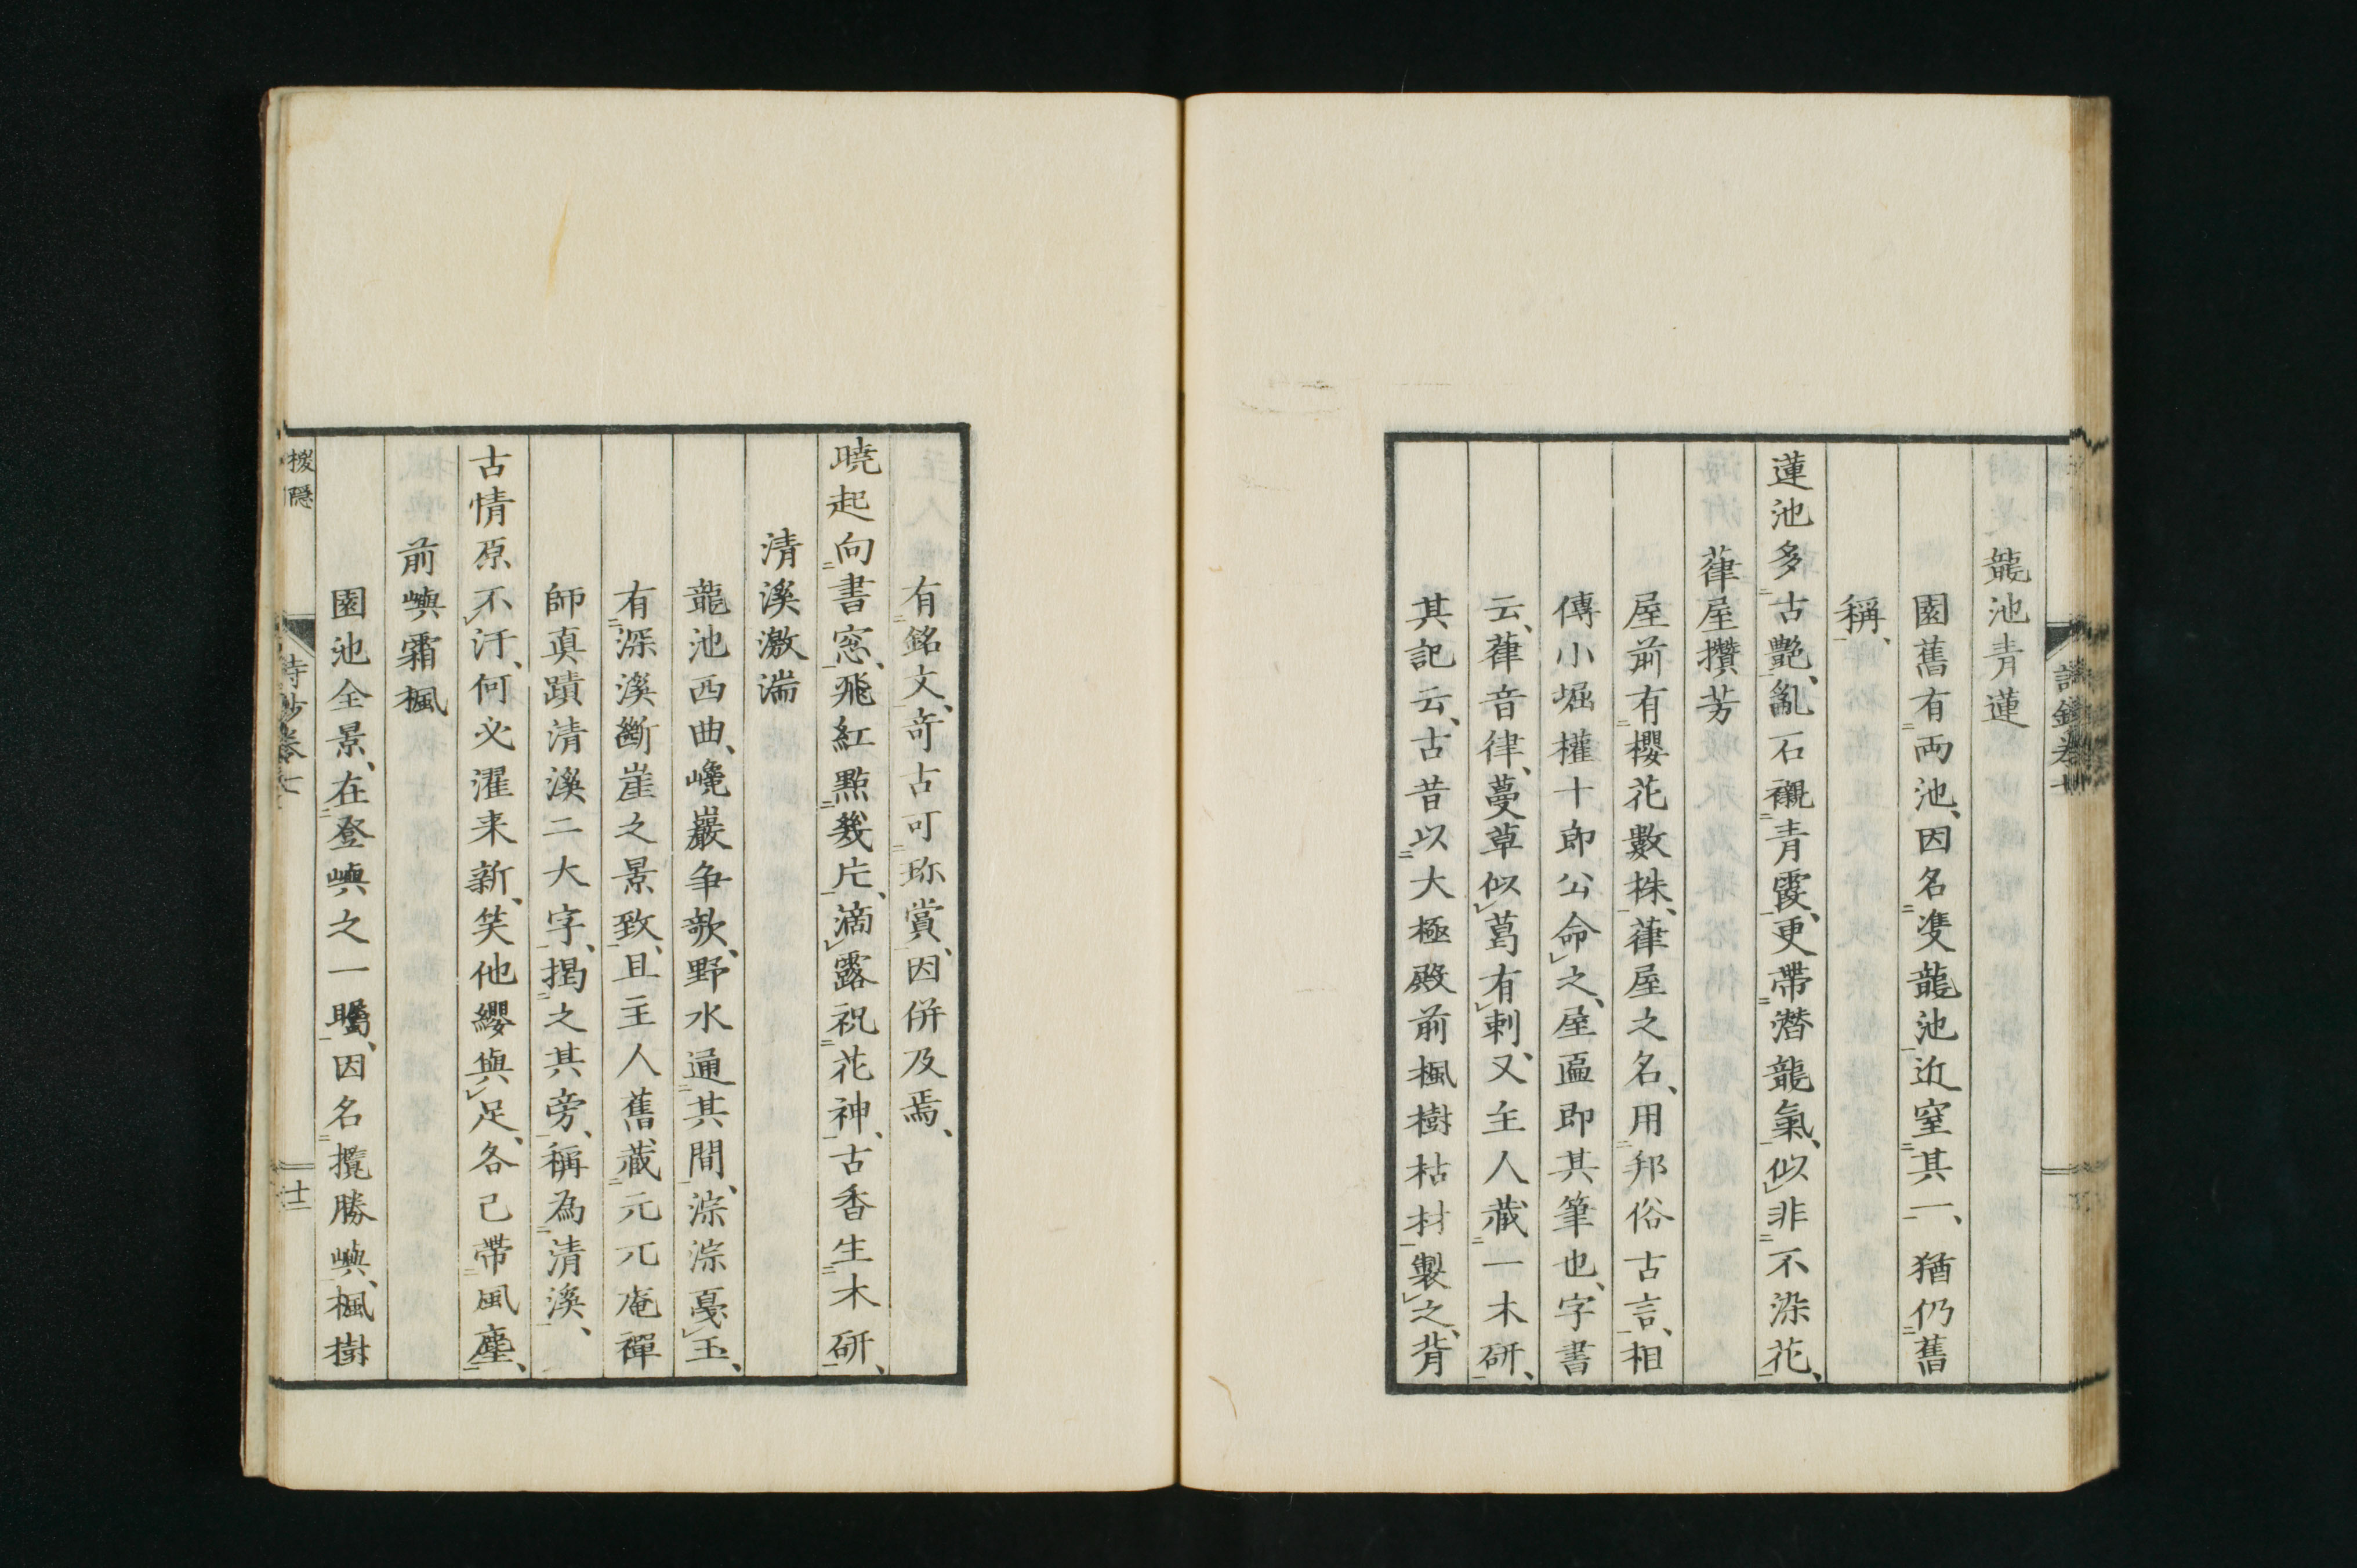 龍池青蓮
園舊有両池、因名雙龍池近窒其一、猶仍舊
稱、
蓮池多古艷、亂石襯青霞、更帶潜龍氣、似非不染花、
葎屋攢芳
屋前有櫻花數株、葎屋之名、用邦俗古言、相
傳小堀權十郎公命之、屋匾即其筆也、字書
云、葎音律、蔓草似葛有刺、又主人藏一木研、
其記云、古昔以大極殿前楓樹枯材製之、背
有銘文、奇古可珎賞、因併及焉、
曉起向書窓、飛紅點幾片、滴露祝花神、古香生木研、
清溪激湍
龍池西曲、巉巖争欹、野水通其間、淙淙戛玉、
有深溪斷崖之景致、且主人舊藏元兀庵禪
師真蹟清溪二大字、揭之其旁、稱為清溪、
古情原不汙、何必濯来新、笑他纓與足、各已帶風塵、
前嶼霜楓
園池全景、在登嶼之一矚、因名攬勝嶼、楓樹
詩鈔卷十
十二